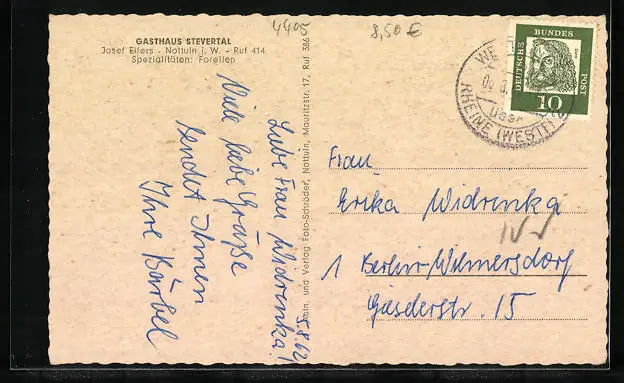 4405
8,50 €
GASTHAUS STEVERTAL
Josef Elfers · Nottuln i. W. · Ruf 414
Spezialitäten: Forellen
5.8.62
Liebe Frau Widrenka!
Viele liebe Grüße
sendet Ihnen
Ihre Bärbel
und Verlag Foto-Schröder, Nottuln, Mauritzstr. 17, Ruf 386
DEUTSCHE BUNDES POST
10
RHEINE (WESTF)
Frau
Erika Widrenka
1 Berlin-Wilmersdorf
Gieselerstr. 15